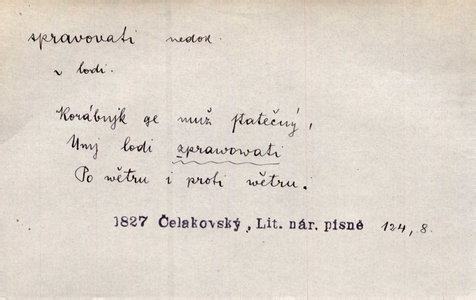 spravovati nedok.
v lodi.
Korábnjk ge muž statečný,
Umj lodi zprawowati
Po wětru i proti wětru.
1827 Čelakovský, Lit. nár. písně 124, 8.